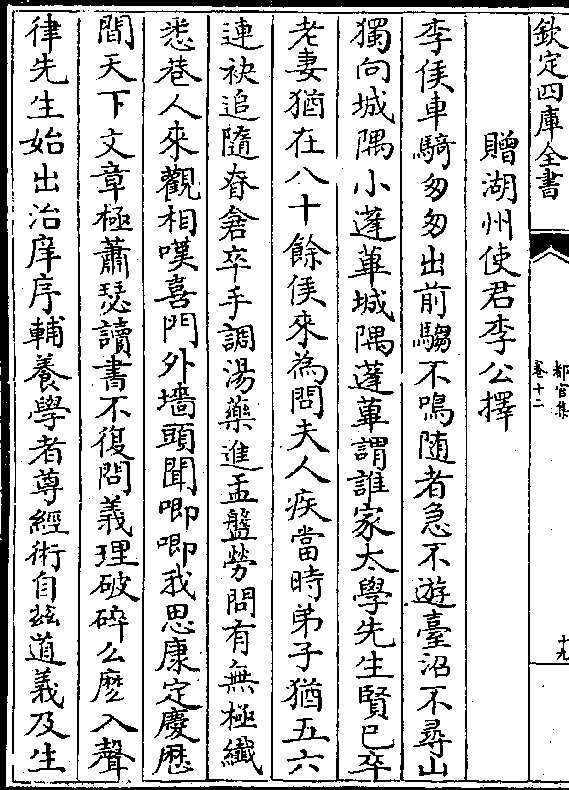 欽定四庫全書
都官集
卷十二
十九
贈湖州使君李公擇
李侯車騎匆匆出前騶不鳴随者急不遊臺沼不尋山
獨向城隅小蓬蓽城隅蓬蓽謂誰家太學先生賢已卒
老妻猶在八十餘侯來為問夫人疾當時弟子猶五六
連袂追隨脊鴒卒手調湯藥進盂盤勞問有無極纖
悉巷人來觀相嘆喜門外墻頭聞唧唧我思康定慶厯
間天下文章極蕭瑟讀書不復問義理破碎么麽入聲
律先生始出治庠序輔養學者尊經術自兹道義及生